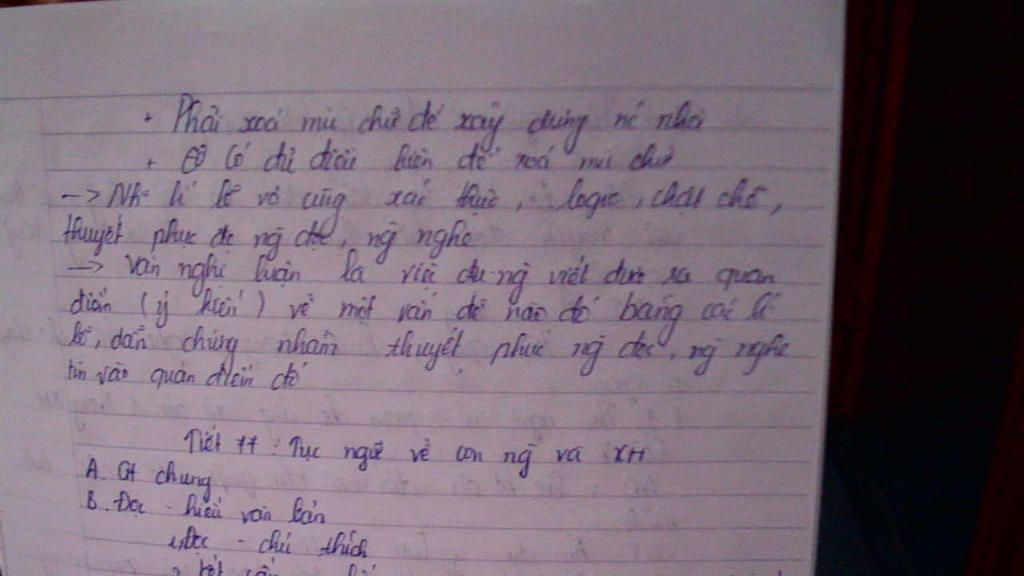 + Phải xoá mù chữ để xây dựng nc nhà
+ Có đủ điều kiện để xoá mù chữ
-> Nh lí lẽ vô cùng xác thực, logic, chặt chẽ,
thuyết phục đc ng đọc, ng nghe
-> Văn nghị luận là việc ng viết đưa ra quan
điểm (ý kiến) về một vấn đề nào đó bằng các lí
lẽ, dẫn chứng nhằm thuyết phục ng đọc, ng nghe
tin vào quan điểm đó
Tiết 77: Tục ngữ về con ng và XH
A. Gt chung
B. Đọc - hiểu văn bản
1, Đọc - chú thích